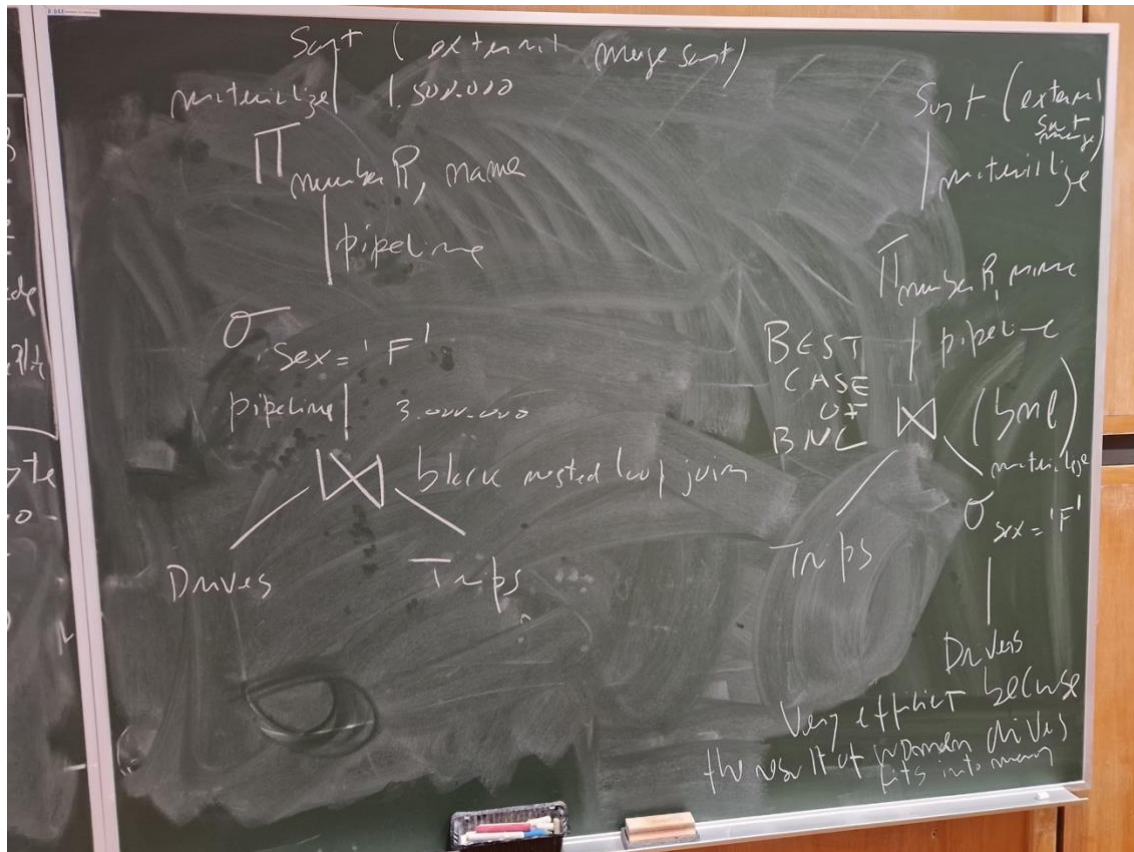 Sort (external merge sort)
materialize 1.500.000
Π numberR, name
pipeline
σ sex = 'F'
pipeline 3.000.000
⋈ block nested loop join
Drives Trips
Sort (external
sort
merge)
materialize
Π numberR, name
pipeline
BEST
CASE
OF
BNL
⋈ (bnl)
materialize
σ sex = 'F'
Trips
Drivers
Very efficient because
the result of women drives
fits into memory